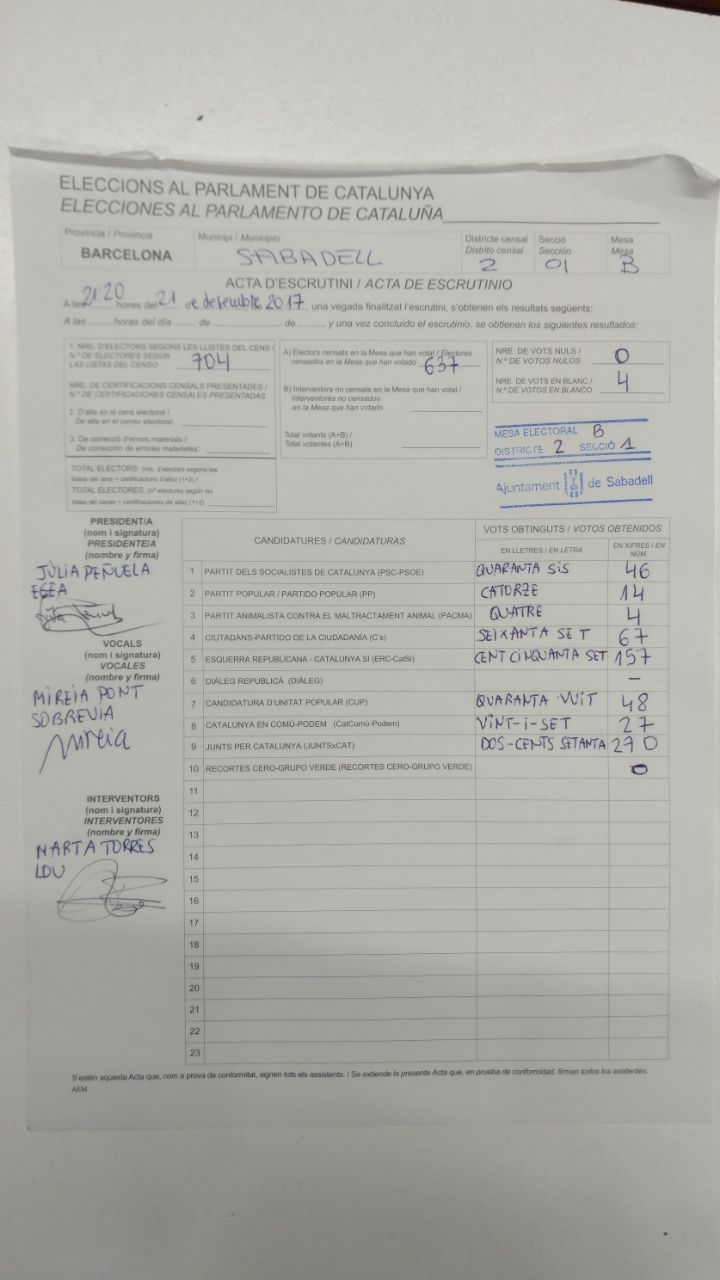 ELECCIONS AL PARLAMENT DE CATALUNYA
ELECCIONES AL PARLAMENTO DE CATALUÑA
Província / Provincia
BARCELONA
Municipi / Municipio
SABADELL
Districte censal
Distrito censal
2
Secció
Sección
01
Mesa
Mesa
B
ACTA D'ESCRUTINI / ACTA DE ESCRUTINIO
A les 21:20 hores del 21 de desembre 2017, una vegada finalitzat l'escrutini, s'obtenen els resultats següents:
A las ......... horas del día ........ de ........................ de ........, y una vez concluido el escrutinio, se obtienen los siguientes resultados:
1. NRE. D'ELECTORS SEGONS LES LLISTES DEL CENS /
N.º DE ELECTORES SEGÚN
LAS LISTAS DEL CENSO 704
NRE. DE CERTIFICACIONS CENSALS PRESENTADES /
N.º DE CERTIFICACIONES CENSALES PRESENTADAS
2. D'alta en el cens electoral /
De alta en el censo electoral:
3. De correcció d'errors materials /
De corrección de errores materiales:
TOTAL ELECTORS: (nre. d'electors segons les
llistes del cens + certificacions d'alta) (1+2) /
TOTAL ELECTORES: (nº electores según las
listas del censo + certificaciones de alta) (1+2)
A) Electors censats en la Mesa que han votat / Electores
censados en la Mesa que han votado 637
B) Interventors no censats en la Mesa que han votat /
Interventores no censados
en la Mesa que han votado
Total votants (A+B) /
Total votantes (A+B)
NRE. DE VOTS NULS /
N.º DE VOTOS NULOS 0
NRE. DE VOTS EN BLANC /
N.º DE VOTOS EN BLANCO 4
MESA ELECTORAL B
DISTRICTE 2 SECCIÓ 1
Ajuntament de Sabadell
PRESIDENT/A
(nom i signatura)
PRESIDENTE/A
(nombre y firma)
JÚLIA PEÑUELA
EGEA
VOCALS
(nom i signatura)
VOCALES
(nombre y firma)
MIREIA PONT
SOBREVIA
Mireia
INTERVENTORS
(nom i signatura)
INTERVENTORES
(nombre y firma)
MARTA TORRES
LOU
CANDIDATURES / CANDIDATURAS
VOTS OBTINGUTS / VOTOS OBTENIDOS
EN LLETRES / EN LETRA
EN XIFRES / EN NÚM.
1 PARTIT DELS SOCIALISTES DE CATALUNYA (PSC-PSOE) QUARANTA SIS 46
2 PARTIT POPULAR / PARTIDO POPULAR (PP) CATORZE 14
3 PARTIT ANIMALISTA CONTRA EL MALTRACTAMENT ANIMAL (PACMA) QUATRE 4
4 CIUTADANS-PARTIDO DE LA CIUDADANÍA (C's) SEIXANTA SET 67
5 ESQUERRA REPUBLICANA - CATALUNYA SÍ (ERC-CatSí) CENT CINQUANTA SET 157
6 DIÀLEG REPUBLICÀ (DIÀLEG) –
7 CANDIDATURA D'UNITAT POPULAR (CUP) QUARANTA VUIT 48
8 CATALUNYA EN COMÚ-PODEM (CatComú-Podem) VINT-I-SET 27
9 JUNTS PER CATALUNYA (JUNTSxCAT) DOS-CENTS SETANTA 270
10 RECORTES CERO-GRUPO VERDE (RECORTES CERO-GRUPO VERDE) 0
11
12
13
14
15
16
17
18
19
20
21
22
23
S'estén aquesta Acta que, com a prova de conformitat, signen tots els assistents. / Se extiende la presente Acta que, en prueba de conformidad, firman todos los asistentes.
AEM